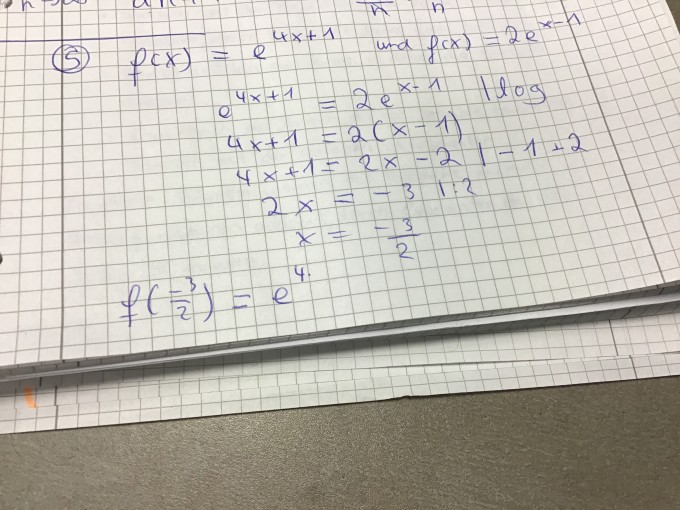 ⑤ f(x) = e^{4x+1} und f(x) = 2e^{x-1}
e^{4x+1} = 2e^{x-1} | log
4x+1 = 2(x-1)
4x+1 = 2x-2 | -1 +2
2x = -3 | :2
x = \frac{-3}{2}
f(\frac{-3}{2}) = e^{4·